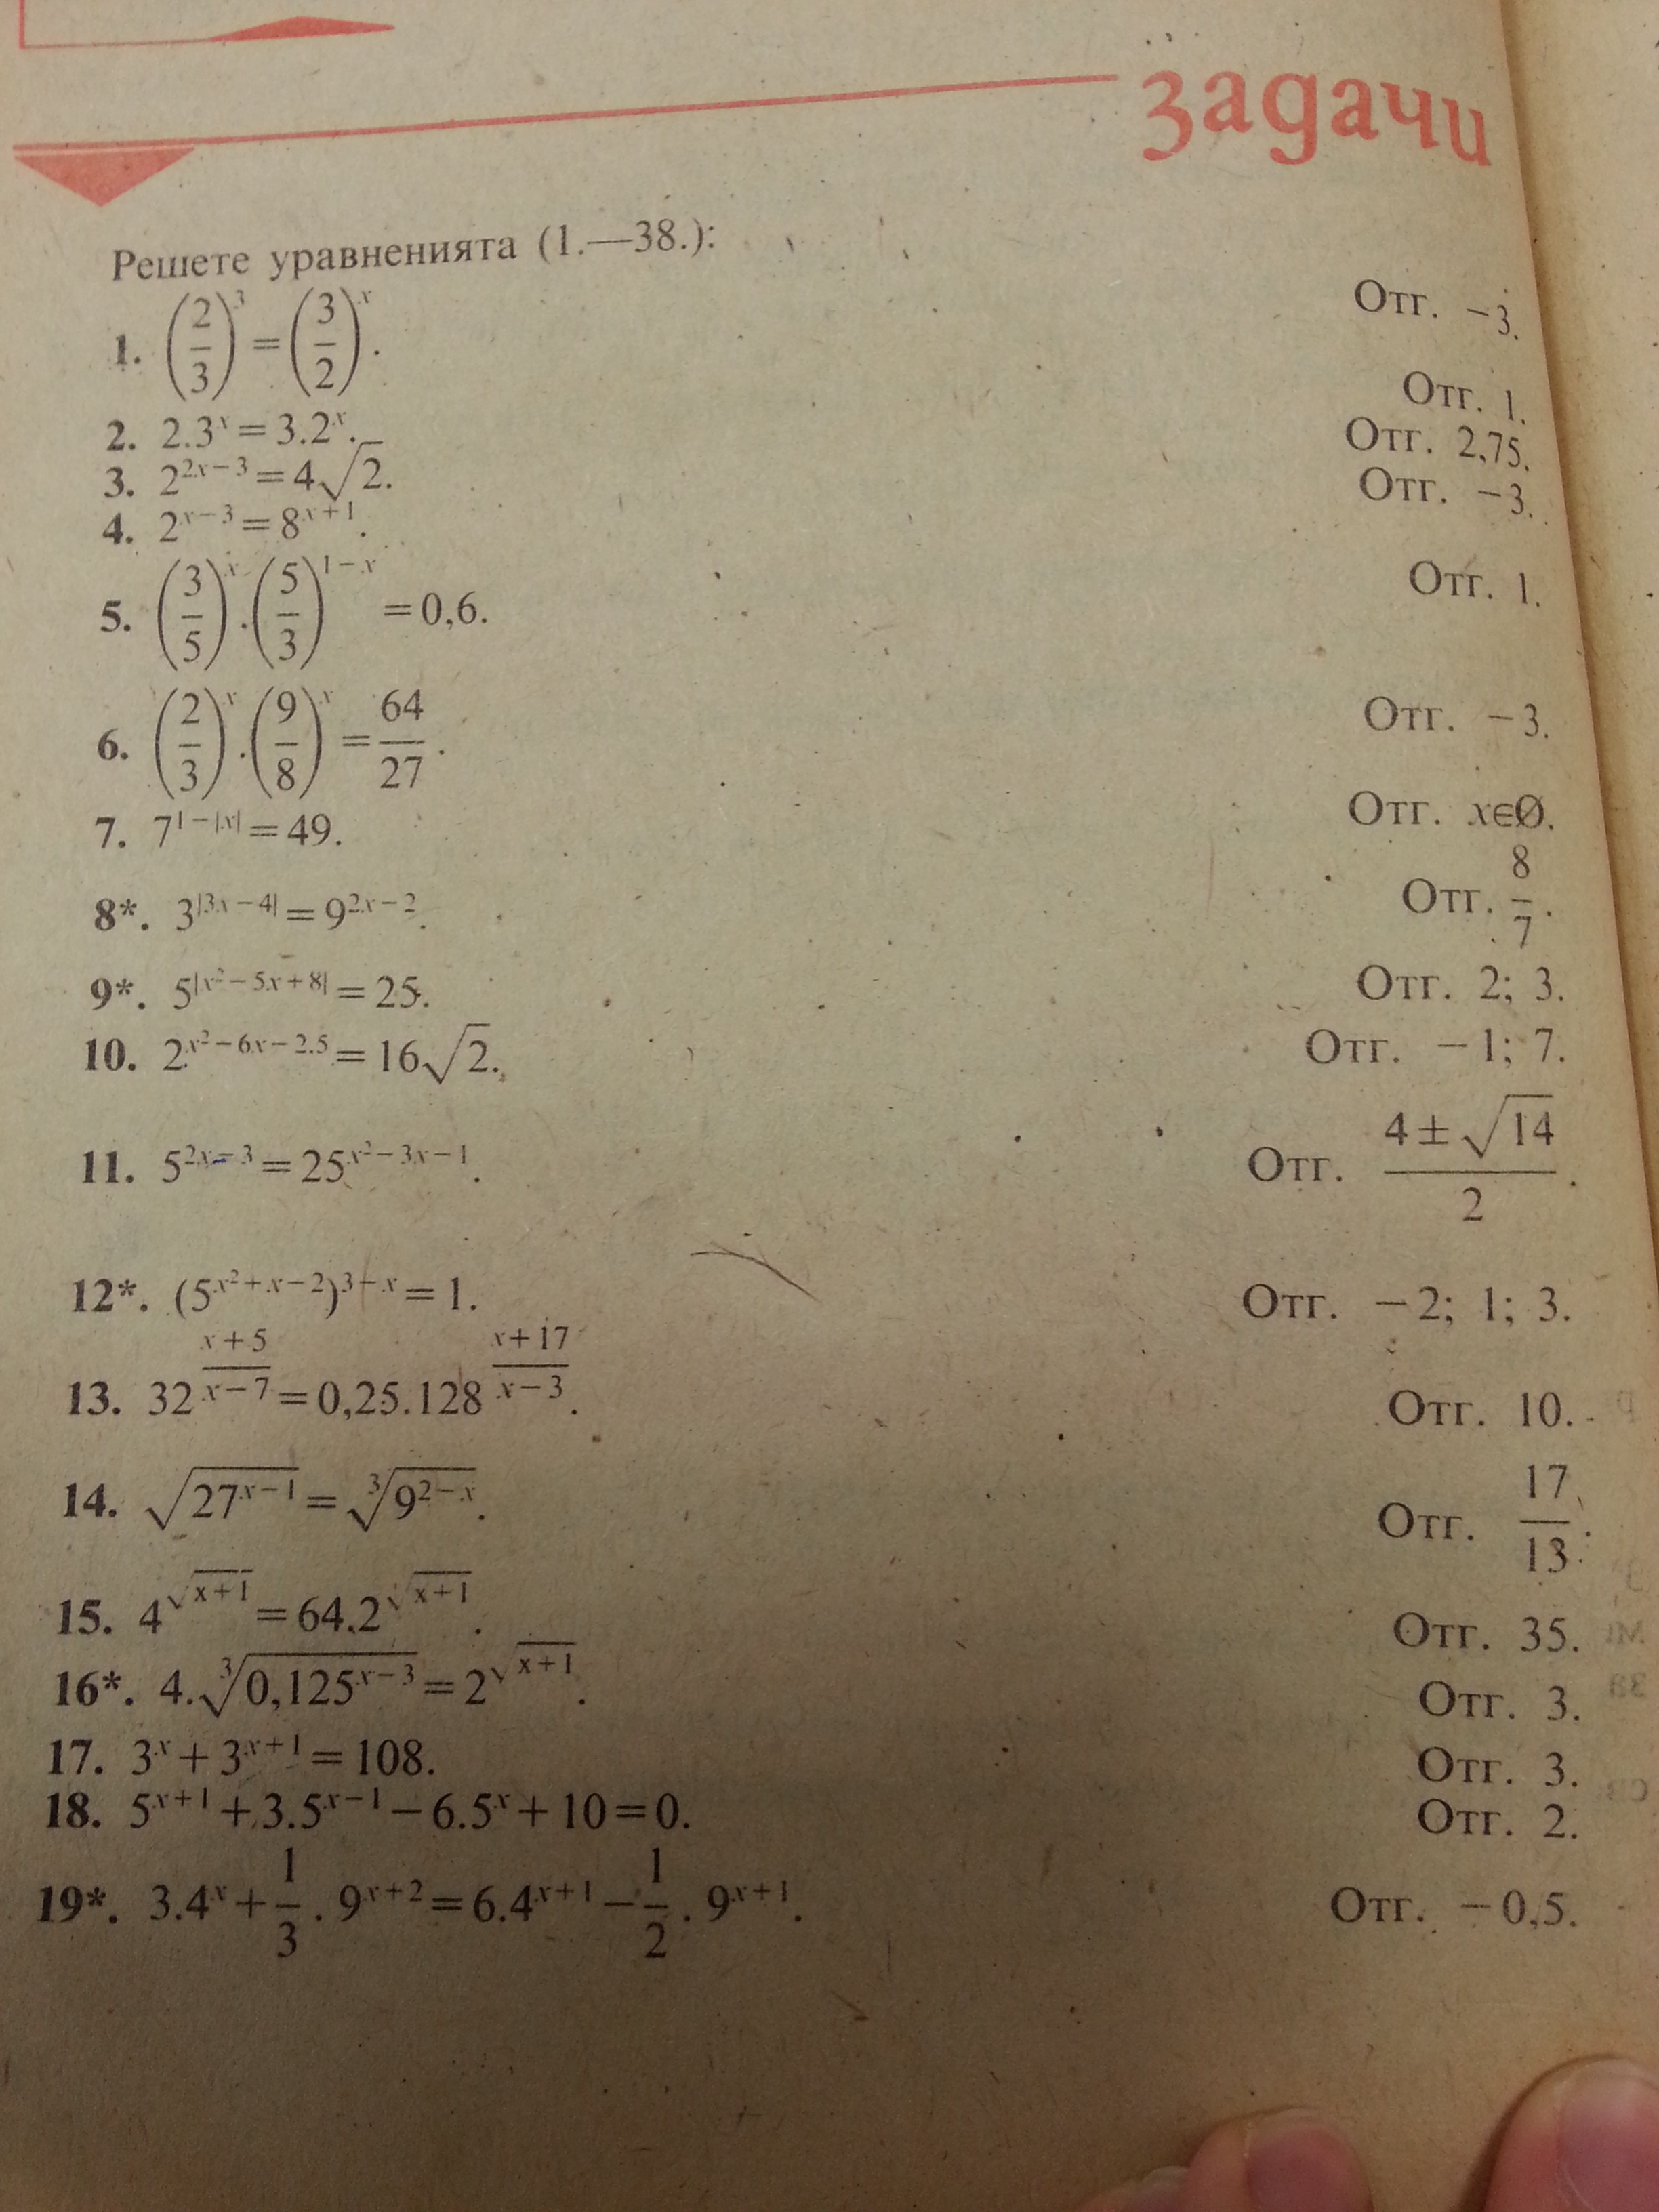 задачи
Решете уравненията (1.—38.):
1. (2/3)³ = (3/2)ˣ. Отг. −3.
2. 2.3ˣ = 3.2ˣ. Отг. 1.
3. 2^(2x−3) = 4√2. Отг. 2,75.
4. 2^(x−3) = 8^(x+1). Отг. −3.
5. (3/5)^x . (5/3)^(1−x) = 0,6. Отг. 1.
6. (2/3)^x . (9/8)^x = 64/27. Отг. −3.
7. 7^(1−|x|) = 49. Отг. x∈Ø.
8*. 3^|3x−4| = 9^(2x−2). Отг. 8/7.
9*. 5^|x²−5x+8| = 25. Отг. 2; 3.
10. 2^(x²−6x−2.5) = 16√2. Отг. −1; 7.
11. 5^(2x−3) = 25^(x²−3x−1). Отг. (4±√14)/2.
12*. (5^(x²+x−2))^(3−x) = 1. Отг. −2; 1; 3.
13. 32^((x+5)/(x−7)) = 0,25.128^((x+17)/(x−3)). Отг. 10.
14. √(27^(x−1)) = ³√(9^(2−x)). Отг. 17/13.
15. 4^√(x+1) = 64.2^√(x+1). Отг. 35.
16*. 4.³√(0,125^(x−3)) = 2^√(x+1). Отг. 3.
17. 3^x + 3^(x+1) = 108. Отг. 3.
18. 5^(x+1) + 3.5^(x−1) − 6.5^x + 10 = 0. Отг. 2.
19*. 3.4^x + 1/3 . 9^(x+2) = 6.4^(x+1) − 1/2 . 9^(x+1). Отг. −0,5.